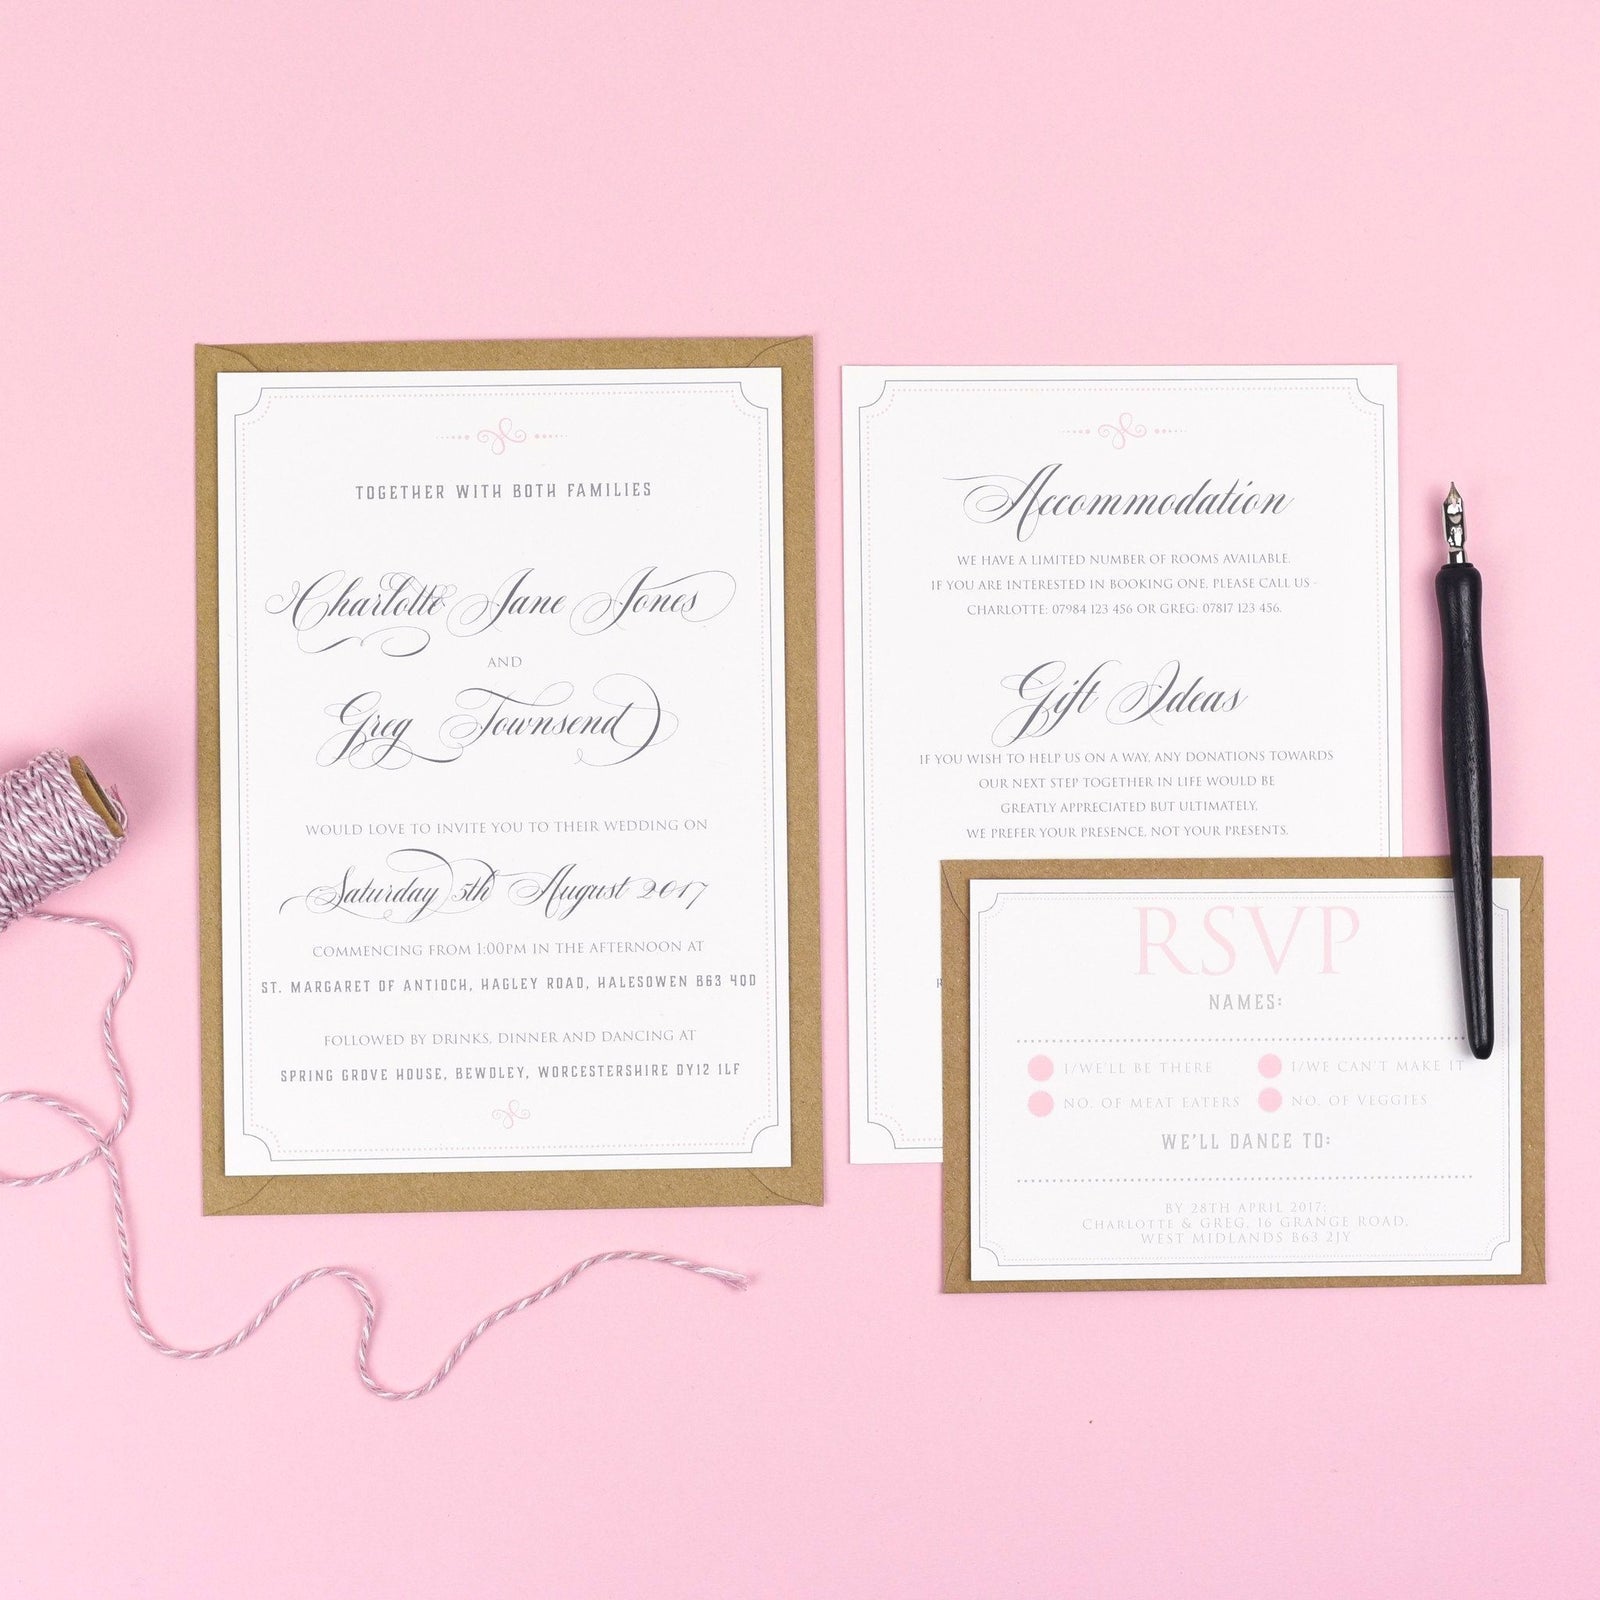 TOGETHER WITH BOTH FAMILIES
Charlotte Jane Jones
AND
Greg Townsend
WOULD LOVE TO INVITE YOU TO THEIR WEDDING ON
Saturday 5th August 2017
COMMENCING FROM 1:00PM IN THE AFTERNOON AT
ST. MARGARET OF ANTIOCH, HAGLEY ROAD, HALESOWEN B63 4QD
FOLLOWED BY DRINKS, DINNER AND DANCING AT
SPRING GROVE HOUSE, BEWDLEY, WORCESTERSHIRE DY12 1LF
Accommodation
WE HAVE A LIMITED NUMBER OF ROOMS AVAILABLE.
IF YOU ARE INTERESTED IN BOOKING ONE, PLEASE CALL US -
CHARLOTTE: 07984 123 456 OR GREG: 07817 123 456.
Gift Ideas
IF YOU WISH TO HELP US ON A WAY, ANY DONATIONS TOWARDS
OUR NEXT STEP TOGETHER IN LIFE WOULD BE
GREATLY APPRECIATED BUT ULTIMATELY,
WE PREFER YOUR PRESENCE, NOT YOUR PRESENTS.
RSVP
NAMES:
I/WE'LL BE THERE I/WE CAN'T MAKE IT
NO. OF MEAT EATERS NO. OF VEGGIES
WE'LL DANCE TO:
BY 28TH APRIL 2017;
CHARLOTTE & GREG, 16 GRANGE ROAD,
WEST MIDLANDS B63 2JY